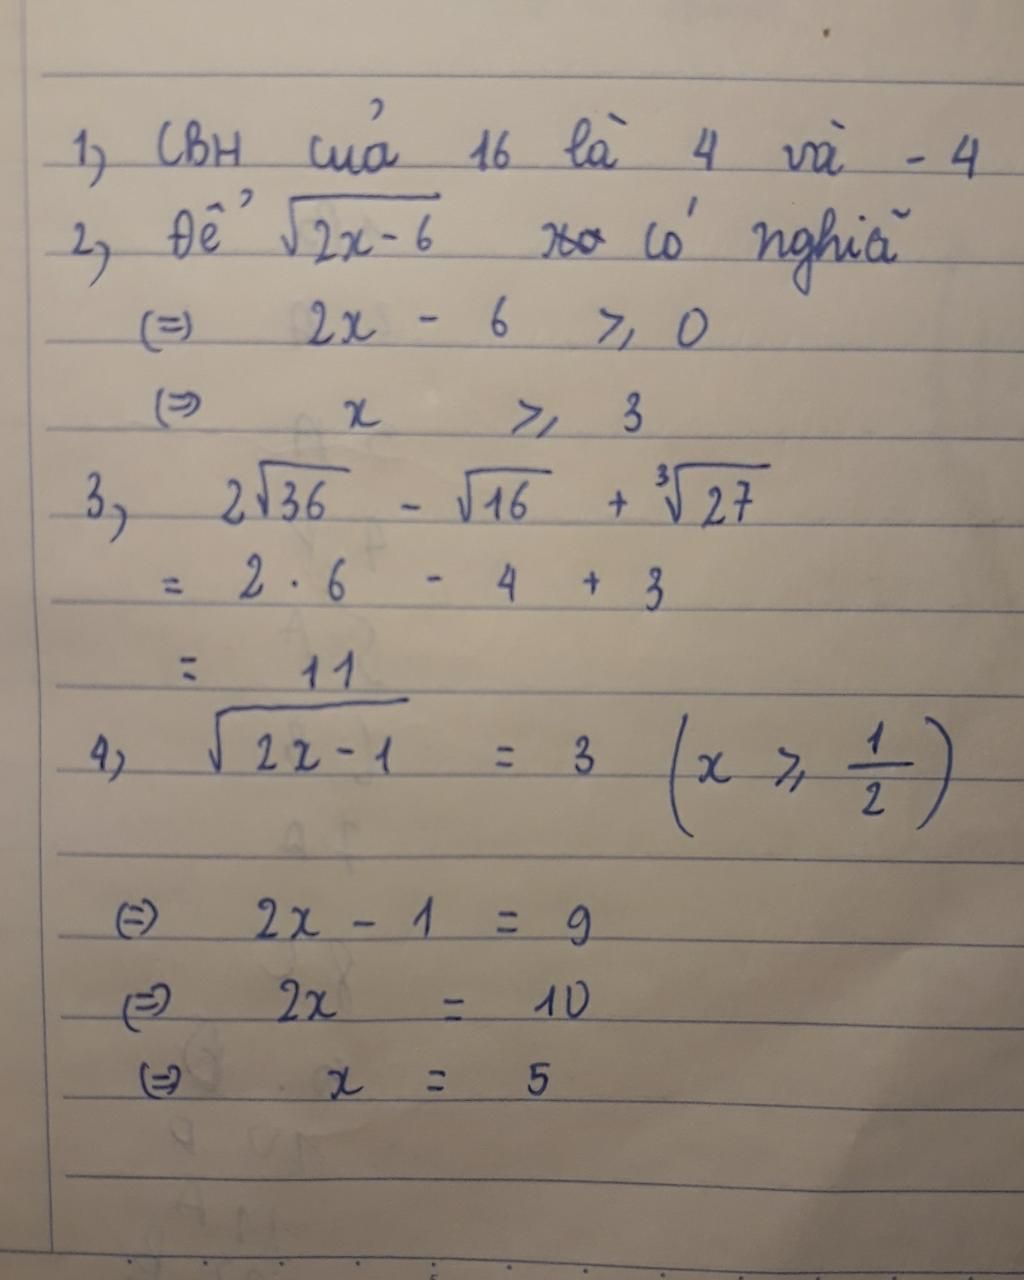 1, CBH của 16 là 4 và - 4
2, Để √2x-6 có nghiã
(=) 2x - 6 ≥ 0
(=) x ≥ 3
3, 2√36 - √16 + ∛27
= 2 . 6 - 4 + 3
= 11
4, √2x-1 = 3 (x ≥ 1/2)
(=) 2x - 1 = 9
(=) 2x = 10
(=) x = 5